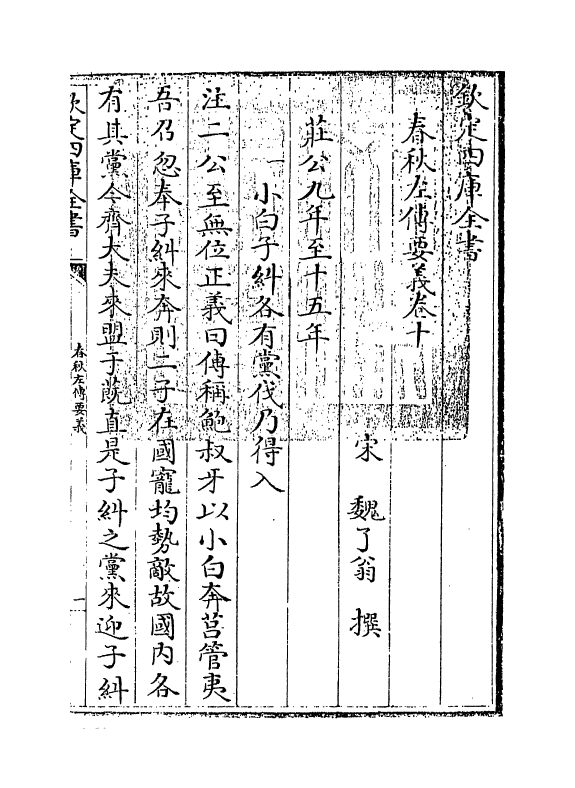 欽定四庫全書
春秋左傳要義卷十
宋 魏了翁 撰
莊公九年至十五年
一 小白子糾各有黨伐乃得入
注二公至無位正義曰傳稱鮑叔牙以小白奔莒管夷
吾召忽奉子糾來奔則二子在國寵均勢敵故國内各
有其黨今齊大夫來盟于蔇直是子糾之黨來迎子糾
欽定四庫全書
春秋左傳要義
一